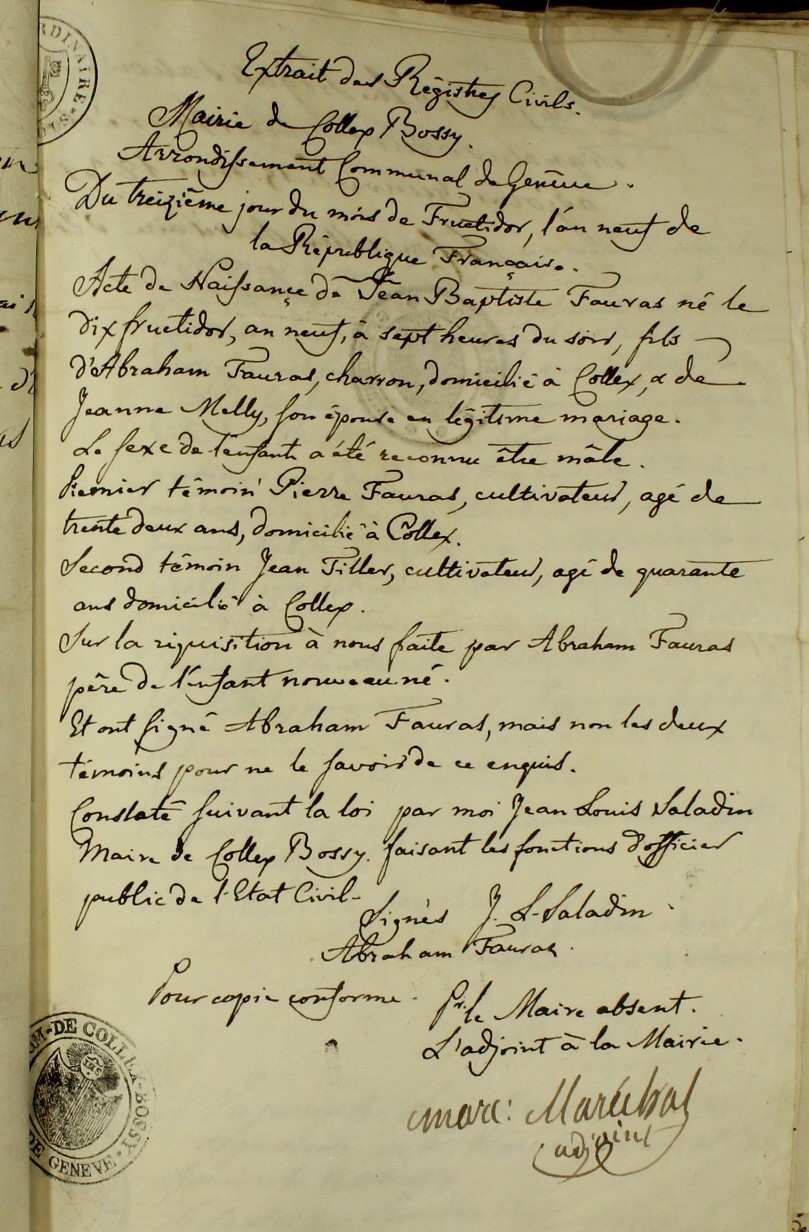 RDINAIRE
Extrait des Régistres Civils.
Mairie de Collex Bossy.
Arrondissement Communal de Genêve.
Du treizième jour du mois de Fructidor, l'an neuf de
la République Française.
Acte de Naissance de Jean Baptiste Fauras né le
dix fructidor, an neuf, à sept heures du soir, fils
d'Abraham Fauras, charron, domicilié à Collex, & de
Jeanne Melly, son épouse en légitime mariage.
Le sexe de l'enfant a été reconnu être mâle.
Premier témoin Pierre Fauras, cultivateur, agé de
trente deux ans, domicilié à Collex.
Second témoin Jean Tiller, cultivateur, agé de quarante
ans domicilié à Collex.
Sur la réquisition à nous faite par Abraham Fauras
père de l'enfant nouveau né.
Et ont signé Abraham Fauras, mais non les deux
témoins pour ne le savoir de ce enquis.
Constaté suivant la loi par moi Jean Louis Saladin
Maire de Collex Bossy. faisant les fonctions d'officier
public de l'Etat Civil.
Signés J. L. Saladin.
Abraham Fauras.
Pour copie conforme. Pr. le Maire absent.
L'adjoint à la Mairie.
marc: Maréchal
adjoint
DE COLLEX-BOSSY
DE GENEVE